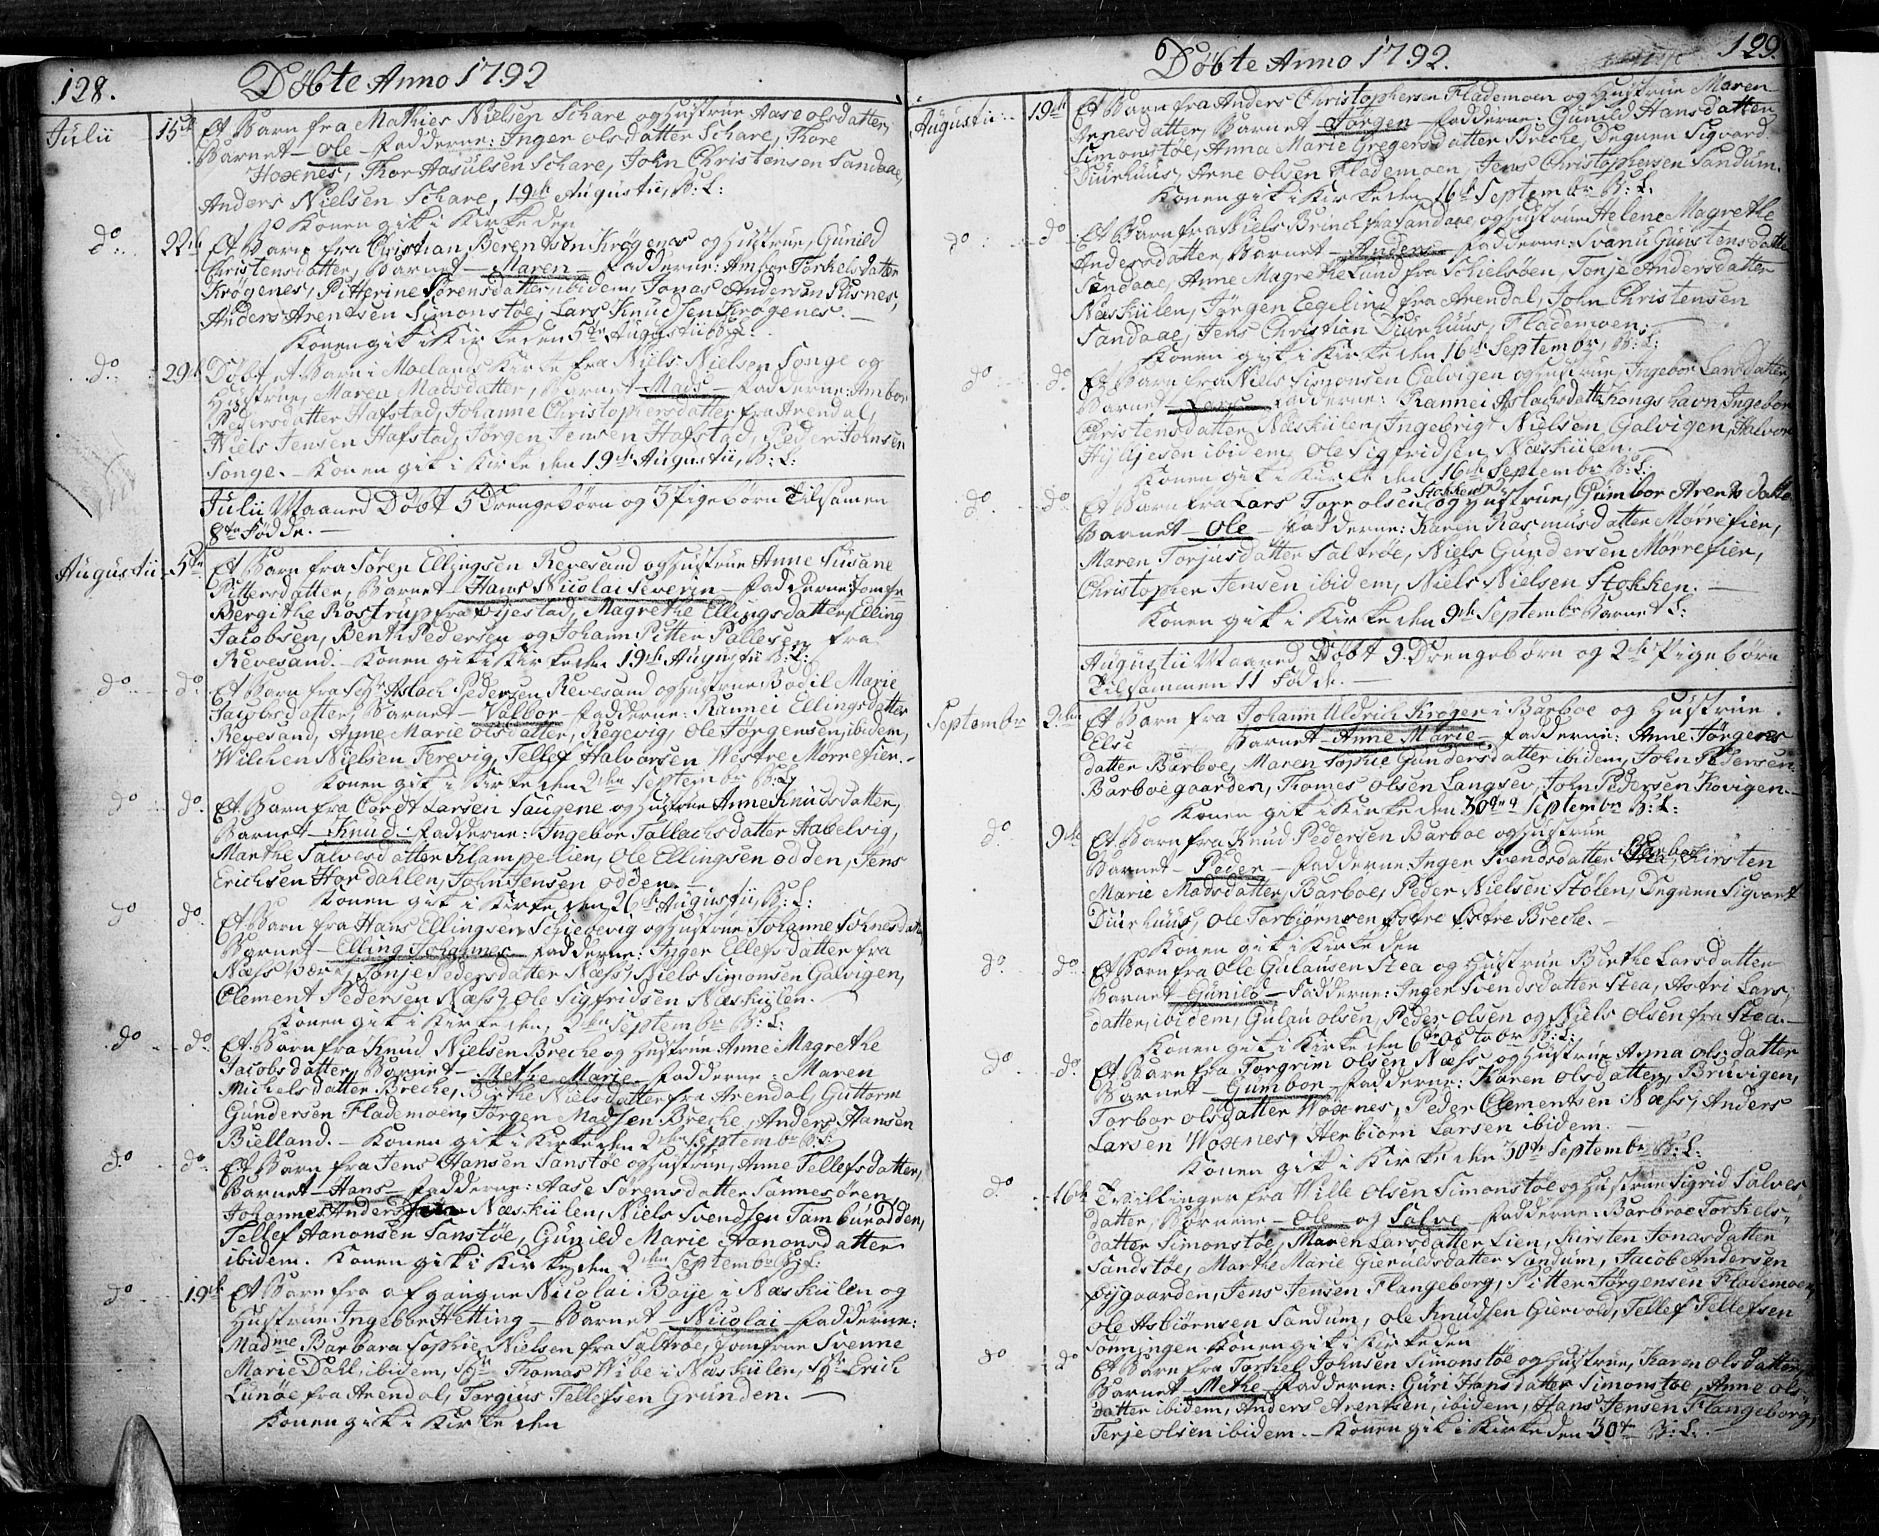 128.
Døbte Anno 1792
Julii 15de Et Barn fra Mathies Nielsen Schare og Hustrue Aase olsdatter,
Barnet - Ole - Fadderne: Inger olsdatter Schare, Thore
Hoxnes, Thor Aasulsen Schare, John Christensen Sandaae,
Anders Nielsen Schare, 19de Augustii, B: L:
Konen gik i Kirke den
do 22de Et Barn fra Christian Berentsen Krøgenes og Hustrue, Gunild
Christensdatter, Barnet - Maren - Fadderne: Ambor Torkelsdatter
Krøgenes, Pitterine Sørensdatter, ibidem, Jonas Andersen Pusnes,
Anders Arentsen Simonstøe, Lars Knudsen Krøgenes. -
Konen gik i Kirke den 5te Augustii B: L:
do 29de Døbt et Barn i Moelands Kirke fra Niels Nielsen Songe og
Hustrue, Maren Madsdatter, Barnet - Mads - Fadderne: Ambor
Pedersdatter Hafstad, Johanne Christophersdatter fra Arendal,
Niels Jensen Hafstad, Jørgen Jensen Hafstad, Peder Johnsen
Songe. - Konen gik i Kirke den 19de Augustii, B: L:
Julii Maaned Døbt 5 Drengebørn og 3 Pigebørn Tilsamen
8te Fødde. -
Augustii 5te Et Barn fra Søren Ellingsen Revesand og Hustrue Anne Susane
Pittersdatter, Barnet - Hans Nicolai Severin - Fadderne: Jomfr
Bergithe Rostrup fra Øijestad, Magrethe Ellingsdatter, Elling
Jacobsen, Bent Pedersen og Johann Pitter Pallesen fra
Revesand. - Konen gik i Kirke den 19de Augustii B: L:
do do Et Barn fra Schr Aslach Pedersen Revesand og Hustrue Bodil Marie
Jacobsdatter, Barnet - Valbor - Fadderne: Rannei Ellingsdatter
Revesand, Anne Marie olsdatter, Regevig, Ole Jørgensen, ibidem,
Wilchen Nielsen Ferevig, Tellef Halvorsen Westre Mørrefier. -
Konen gik i Kirke den 2den Septembr B: L:
do do Et Barn fra Cordt Larsen Saugene og Hustrue Anne Knudsdatter,
Barnet - Knud - Fadderne: Ingebor Tallachsdatter Aabelvig,
Marthe Salvesdatter Klampelien, Ole Ellingsen odden, Jens
Erichsen Hordahlen, John Jensen odden. -
Konen gik i Kirke den 26de Augustii, B: L:
do do Et Barn fra Hans Ellingsen Schiebevig og Hustrue Johanne Johnsdatr
Barnet - Elling Johannes - Fadderne: Inger Ellefsdatter fra
Næss Værk, Tonje Pedersdatter Næss, Niels Simonsen Galvigen,
Clement Pedersen Næss, Ole Sigfridsen Næskiilen. -
Konen gik i Kirke den, 2den Septembr B: L:
do do Et Barn fra Knud Nielsen Breche og Hustrue Anne Magrethe
Jacobsdatter, Barnet - Methe Marie - Fadderne: Maren
Michelsdatter Breche, Birthe Nielsdatter fra Arendal, Guttorm
Gundersen Flademoen, Jørgen Madsen Breche, Anders Hansen
Bielland. - Konen gik i Kirke den 2den Septembr B: L:
do do Et Barn fra Jens Hansen Sanstøe og Hustrue, Anne Tellefsdatter,
Barnet - Hans - Fadderne: Aase Sørensdatter Sannesøren,
Johannes Anders Næskiilen, Niels Svendsen Tambürodden,
Tellef Aanonsen Sanstøe, Gunild Marie Aanonsdatter
ibidem. Konen gik i Kirke den 2den Septembr B: L:
do 19de Et Barn fra afgangne Nicolai Boije i Næskiilen og
Hustrue Ingebor Hetting - Barnet - Nicolai - Fadderne:
Madme Barbara Sophie Nielsen fra Saltrøe, Jomfrue Svenne
Marie Dahl, ibidem, Sr Thomas Wibe i Næskiilen, Sr Erich
Lunøe fra Arendal, Torgius Tellefsen Grunden. -
Konen gik i Kirke den
129.
Døbte Anno 1792.
Augustii 19de Et Barn fra Anders Christophersen Flademoen og Hustrue Maren
Arnesdatter, Barnet - Jørgen - Fadderne: Gunild Hansdatter
Simonstøe, Anna Marie Gregersdatter Breche, Degnen Sigvard
Duurhuus, Arne Olsen Flademoen, Jens Christophersen Sandum.
Konen gik i Kirke den 16de Septembr B: L:
do do Et Barn fra Niels Brinch fra Sandaae, og Hustrue Helene Magrethe
Andersdatter, Barnet - Anders - Fadderne: Svanu Gunstensdatter
Sandaae, Anne Magrethe Lund fra Schielsøen, Tonje Andersdatter
Næskiilen, Jørgen Eegelund fra Arendal, John Christensen
Sandaae, Jens Christian Duurhuus, Flademoen.
Konen gik i Kirke den 16de Septembr, B: L:
do do Et Barn fra Niels Simonsen Galvigen og Hustrue, Ingebor Larsdatter,
Barnet - Lars - Fadderne: Rannei Aslachsdatter Kongshavn, Ingebor
Christensdatter, Næskiilen, Ingebrigt Nielsen Galvigen, Halvor
ibidem, Ole Sigfridsen, Næskiilen.
Konen gik i Kirke den 16de Septembr B: L:
do do Et Barn fra Lars Torrolsen Stokken og Hustrue, Gumbor Arentsdatter
Barnet - Ole - Fadderne: Karen Rasmusdatter Mørrefier,
Maren Torjusdatter Saltrøe, Niels Gundersen Mørrefier,
Christopher Jensen ibidem, Niels Nielsen Stokken. -
Konen gik i Kirke den 9de Septembr Barnet L:
Augustii Maaned Døbt 9 Drengebørn og 2de Pigebørn
Tilsammen 11 Fødde. -
Septembr 2den Et Barn fra Johann Uldrich Krøger i Barboe og Hustrue
Else Barnet - Anne Marie - Fadderne: Anne Jørgens
datter Barboe, Maren Sophie Gundersdatter ibidem, John Pedersen
Barboegaarden, Thomes Olsen Langsev, John Pedersen Kovigen. -
Konen gik i Kirke den 30de Septembr B: L:
do 9de Et Barn fra Knud Pedersen Barboe og Hustrue
Barnet - Peder - Fadderne: Inger Svendsdatter Barboe, Kirsten
Marie Madsdatter, Barboe, Peder Nielsen Stølen, Degnen Sigvart
Duurhuus, Ole Torbiørnsen Østre Breche. -
Konen gik i Kirke den
do do Et Barn fra Ole Gulausen Stea og Hustrue Birthe Larsdatter
Barnet - Gunild - Fadderne: Inger Svendsdatter Stea, Astri Lars,,
datter, ibidem, Gulau olsen, Peder olsen og Niels olsen fra Stea. -
Konen gik i Kirke den 6te octobr B: L:
do do Et Barn fra Torgrim olsen Næss og Hustrue Anna olsdatter
Barnet - Gumbor - Fadderne: Karen olsdatter, Bruvigen,
Torbor olsdatter Woxnes, Peder Clementsen Næss, Anders
Larsen Woxnes, Herbiørn Larsen ibidem. -
Konen gik i Kirke den 30de Septembr B: L:
do 16de Tvillinger fra Wille olsen Simonstøe og Hustrue Sigrid Salves
datter, Børnene - Ole og Salve - Fadderne: Barbroe Torkels,,
datter Simonstøe, Maren Larsdatter Lien, Kirsten Jonasdatter
Sandstøe, Marthe Marie Gieruldsdatter Sandum, Jacob Andersen
Bijgaarden, Jens Jensen Flangeborg, Pitter Jørgensen Flademoen
Ole Asbiørnsen Sandum, Ole Knudsen Gurvold, Tellef Tellefsen
Sonningen Konen gik i Kirke den
do do Et Barn fra Torkel Johnsen Simonstøe og Hustrue, Karen olsdatter
Barnet - Methe - Fadderne: Guri Hansdatter Simonstøe, Anne ols,,
datter ibidem, Anders Arentsen, ibidem, Hans Jensen Flangeborg,
Terje olsen ibidem. - Konen gik i Kirke den 30te B: L: